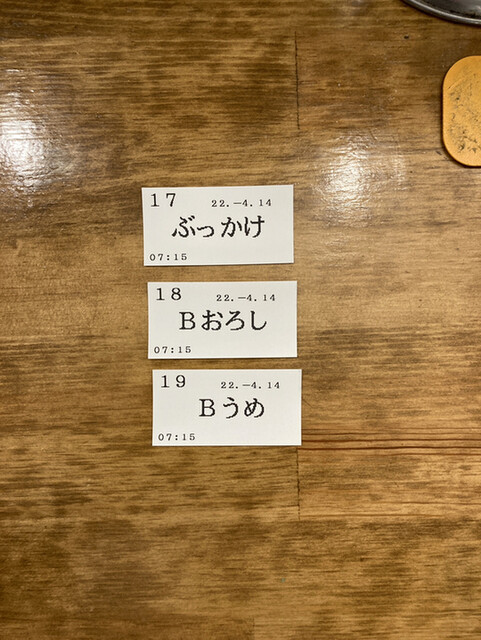 17 22.-4.14
ぶっかけ
07:15
18 22.-4.14
Bおろし
07:15
19 22.-4.14
Bうめ
07:15